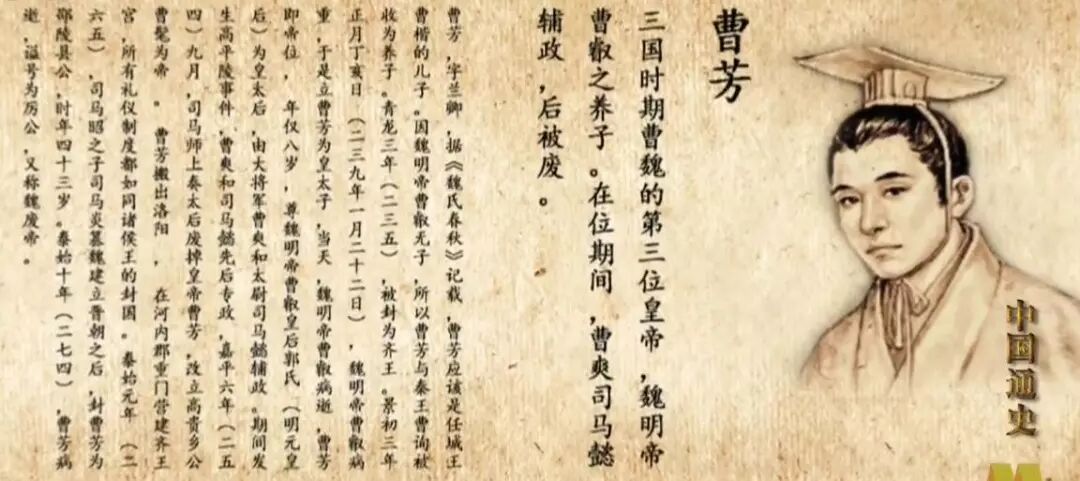 曹芳
三国时期曹魏的第三位皇帝，魏明帝
曹叡之养子。在位期间，曹爽司马懿
辅政，后被废。
曹芳，字兰卿，据《魏氏春秋》记载，曹芳应该是任城王
曹楷的儿子。因魏明帝曹叡无子，所以曹芳与秦王曹询被
收为养子。青龙三年（二三五），被封为齐王。景初三年
正月丁亥日（二三九年一月二十二日），魏明帝曹叡病
重，于是立曹芳为皇太子，当天，魏明帝曹叡病逝，曹芳
即帝位，年仅八岁，尊魏明帝曹叡皇后郭氏（明元皇
后）为皇太后，由大将军曹爽和太尉司马懿辅政。期间发
生高平陵事件，曹爽和司马懿先后专政，嘉平六年（二五
四）九月，司马师上奏太后废掉皇帝曹芳，改立高贵乡公
曹髦为帝。曹芳搬出洛阳，在河内郡重门营建齐王
宫，所有礼仪制度都如同诸侯王的封国。泰始元年（二
六五），司马昭之子司马炎篡魏建立晋朝之后，封曹芳为
邵陵县公，时年四十三岁。泰始十年（二七四），曹芳病
逝，谥号为厉公，又称魏废帝。
中国通史